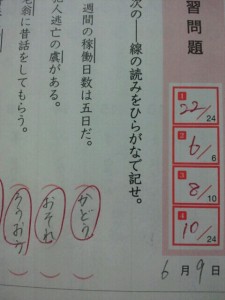 習問題
次の――線の読みをひらがなで記せ。
週間の稼働日数は五日だ。
かどう
犯人逃亡の虞がある。
おそれ
老翁に昔話をしてもらう。
ろうおう
1
22/24
2
6/6
3
8/10
4
10/24
6月9日